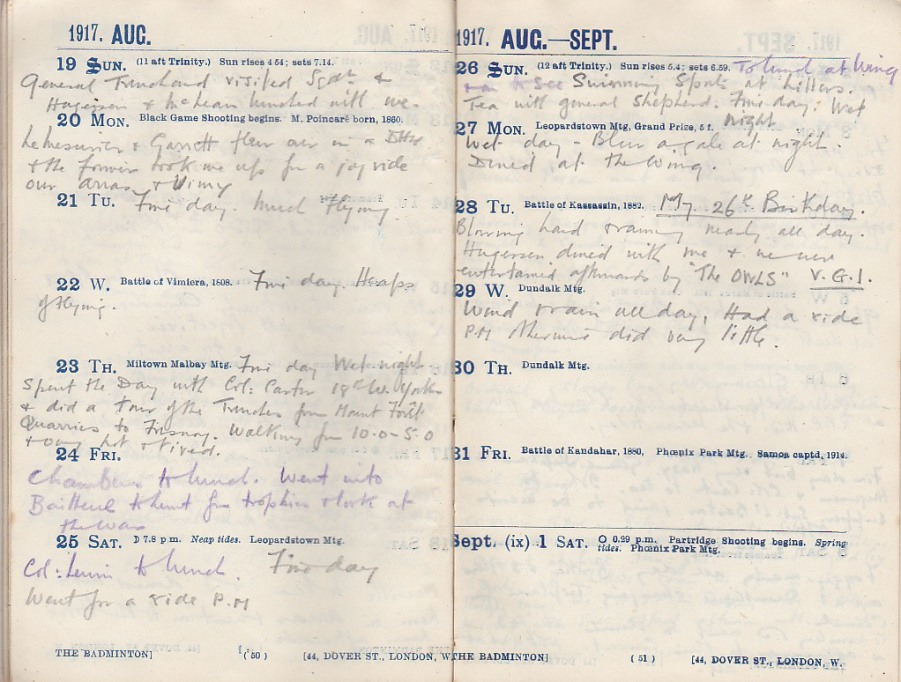 1917. AUG.
19 SUN. (11 aft Trinity.) Sun rises 4 54; sets 7.14.
General Trenchard visited Sqdn &
Hugerson & McLean lunched with me.
20 MON. Black Game Shooting begins. M. Poincaré born, 1860.
LeMesurier & Garrett flew over in a
& the former took me up for a joy ride
over Arras & Vimy
21 TU. Fine day. Much flying
22 W. Battle of Vimiera, 1808. Fine day Heaps
of flying.
23 TH. Miltown Malbay Mtg. Fine day Wet night
Spent the Day with Col: Carter 18th W. Yorks
& did a tour of the Trenches from Mount Forêt
Quarries to Fresnoy. Walking from 10.0-5.0
& very hot & tired.
24 FRI.
Chambers to lunch. Went into
Bailleul to hunt for trophies & look at
the war
25 SAT. 7.8 p.m. Neap tides. Leopardstown Mtg.
Col: to lunch. Fine day
Went for a ride P.M
THE BADMINTON] (50) [44, DOVER ST., LONDON, W.
1917. AUG.—SEPT.
26 SUN. (12 aft Trinity.) Sun rises 5.4; sets 6.59. To lunch at Wing
to see Swimming Sports at Villers.
Tea with General Shepherd. Fine day: Wet
night
27 MON. Leopardstown Mtg, Grand Prize, 5 f.
Wet day - Blew a gale at night.
Dined at the Wing.
28 TU. Battle of Kassassin, 1882. My 26th Birthday.
Blowing hard & raining nearly all day.
Hugerson dined with me & we were
entertained afterwards by "The OWLS" V.G.I.
29 W. Dundalk Mtg.
Wind & rain all day, Had a ride
P.M Otherwise did very little.
30 TH. Dundalk Mtg.
31 FRI. Battle of Kandahar, 1880, Phœnix Park Mtg. Samoa captd, 1914.
Sept. (ix) 1 SAT. 0.29 p.m. Partridge Shooting begins. Spring
tides. Phœnix Park Mtg.
THE BADMINTON] (51) [44, DOVER ST., LONDON, W.